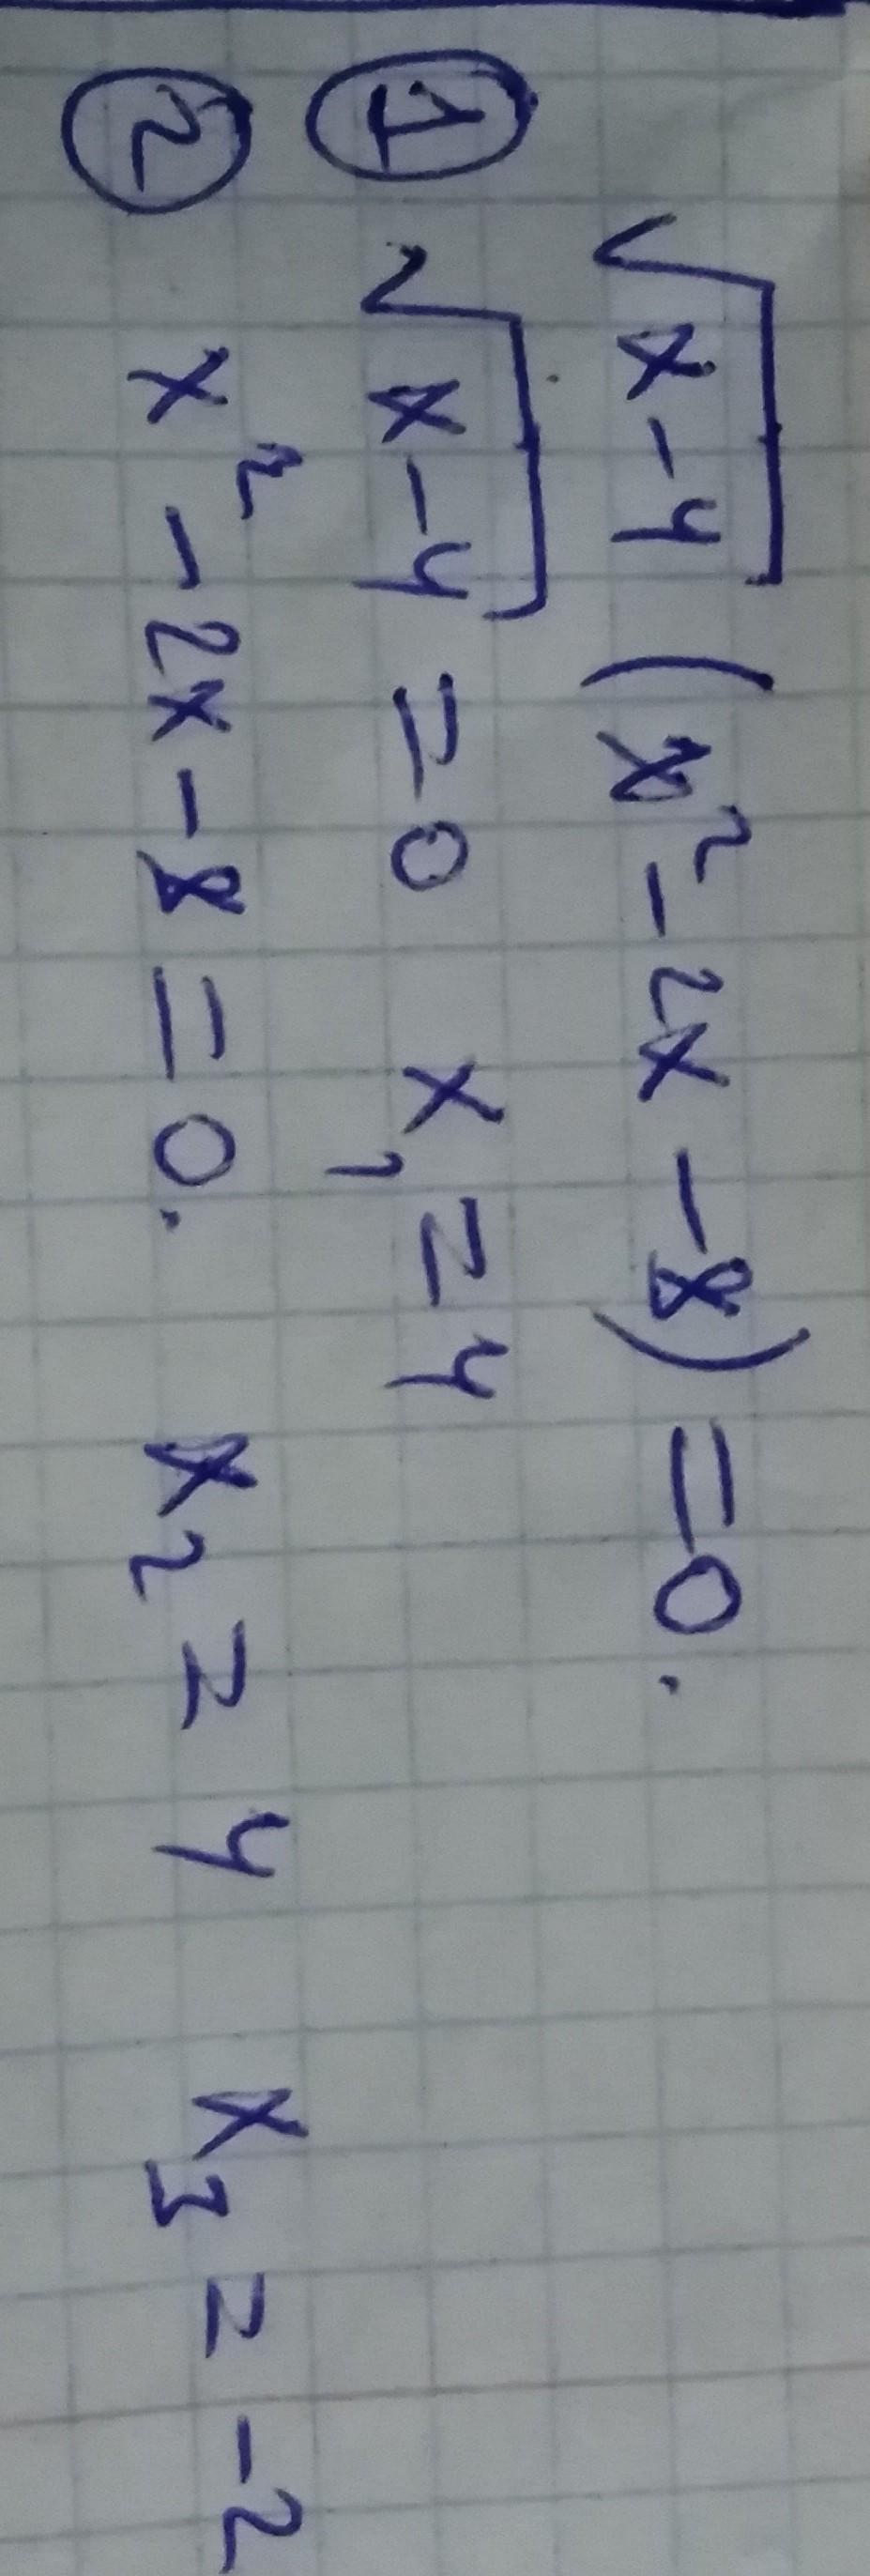 √(x-4) (x²-2x-8)=0.
① √(x-4) =0 x₁=4
② x²-2x-8=0. x₂=4 x₃=-2